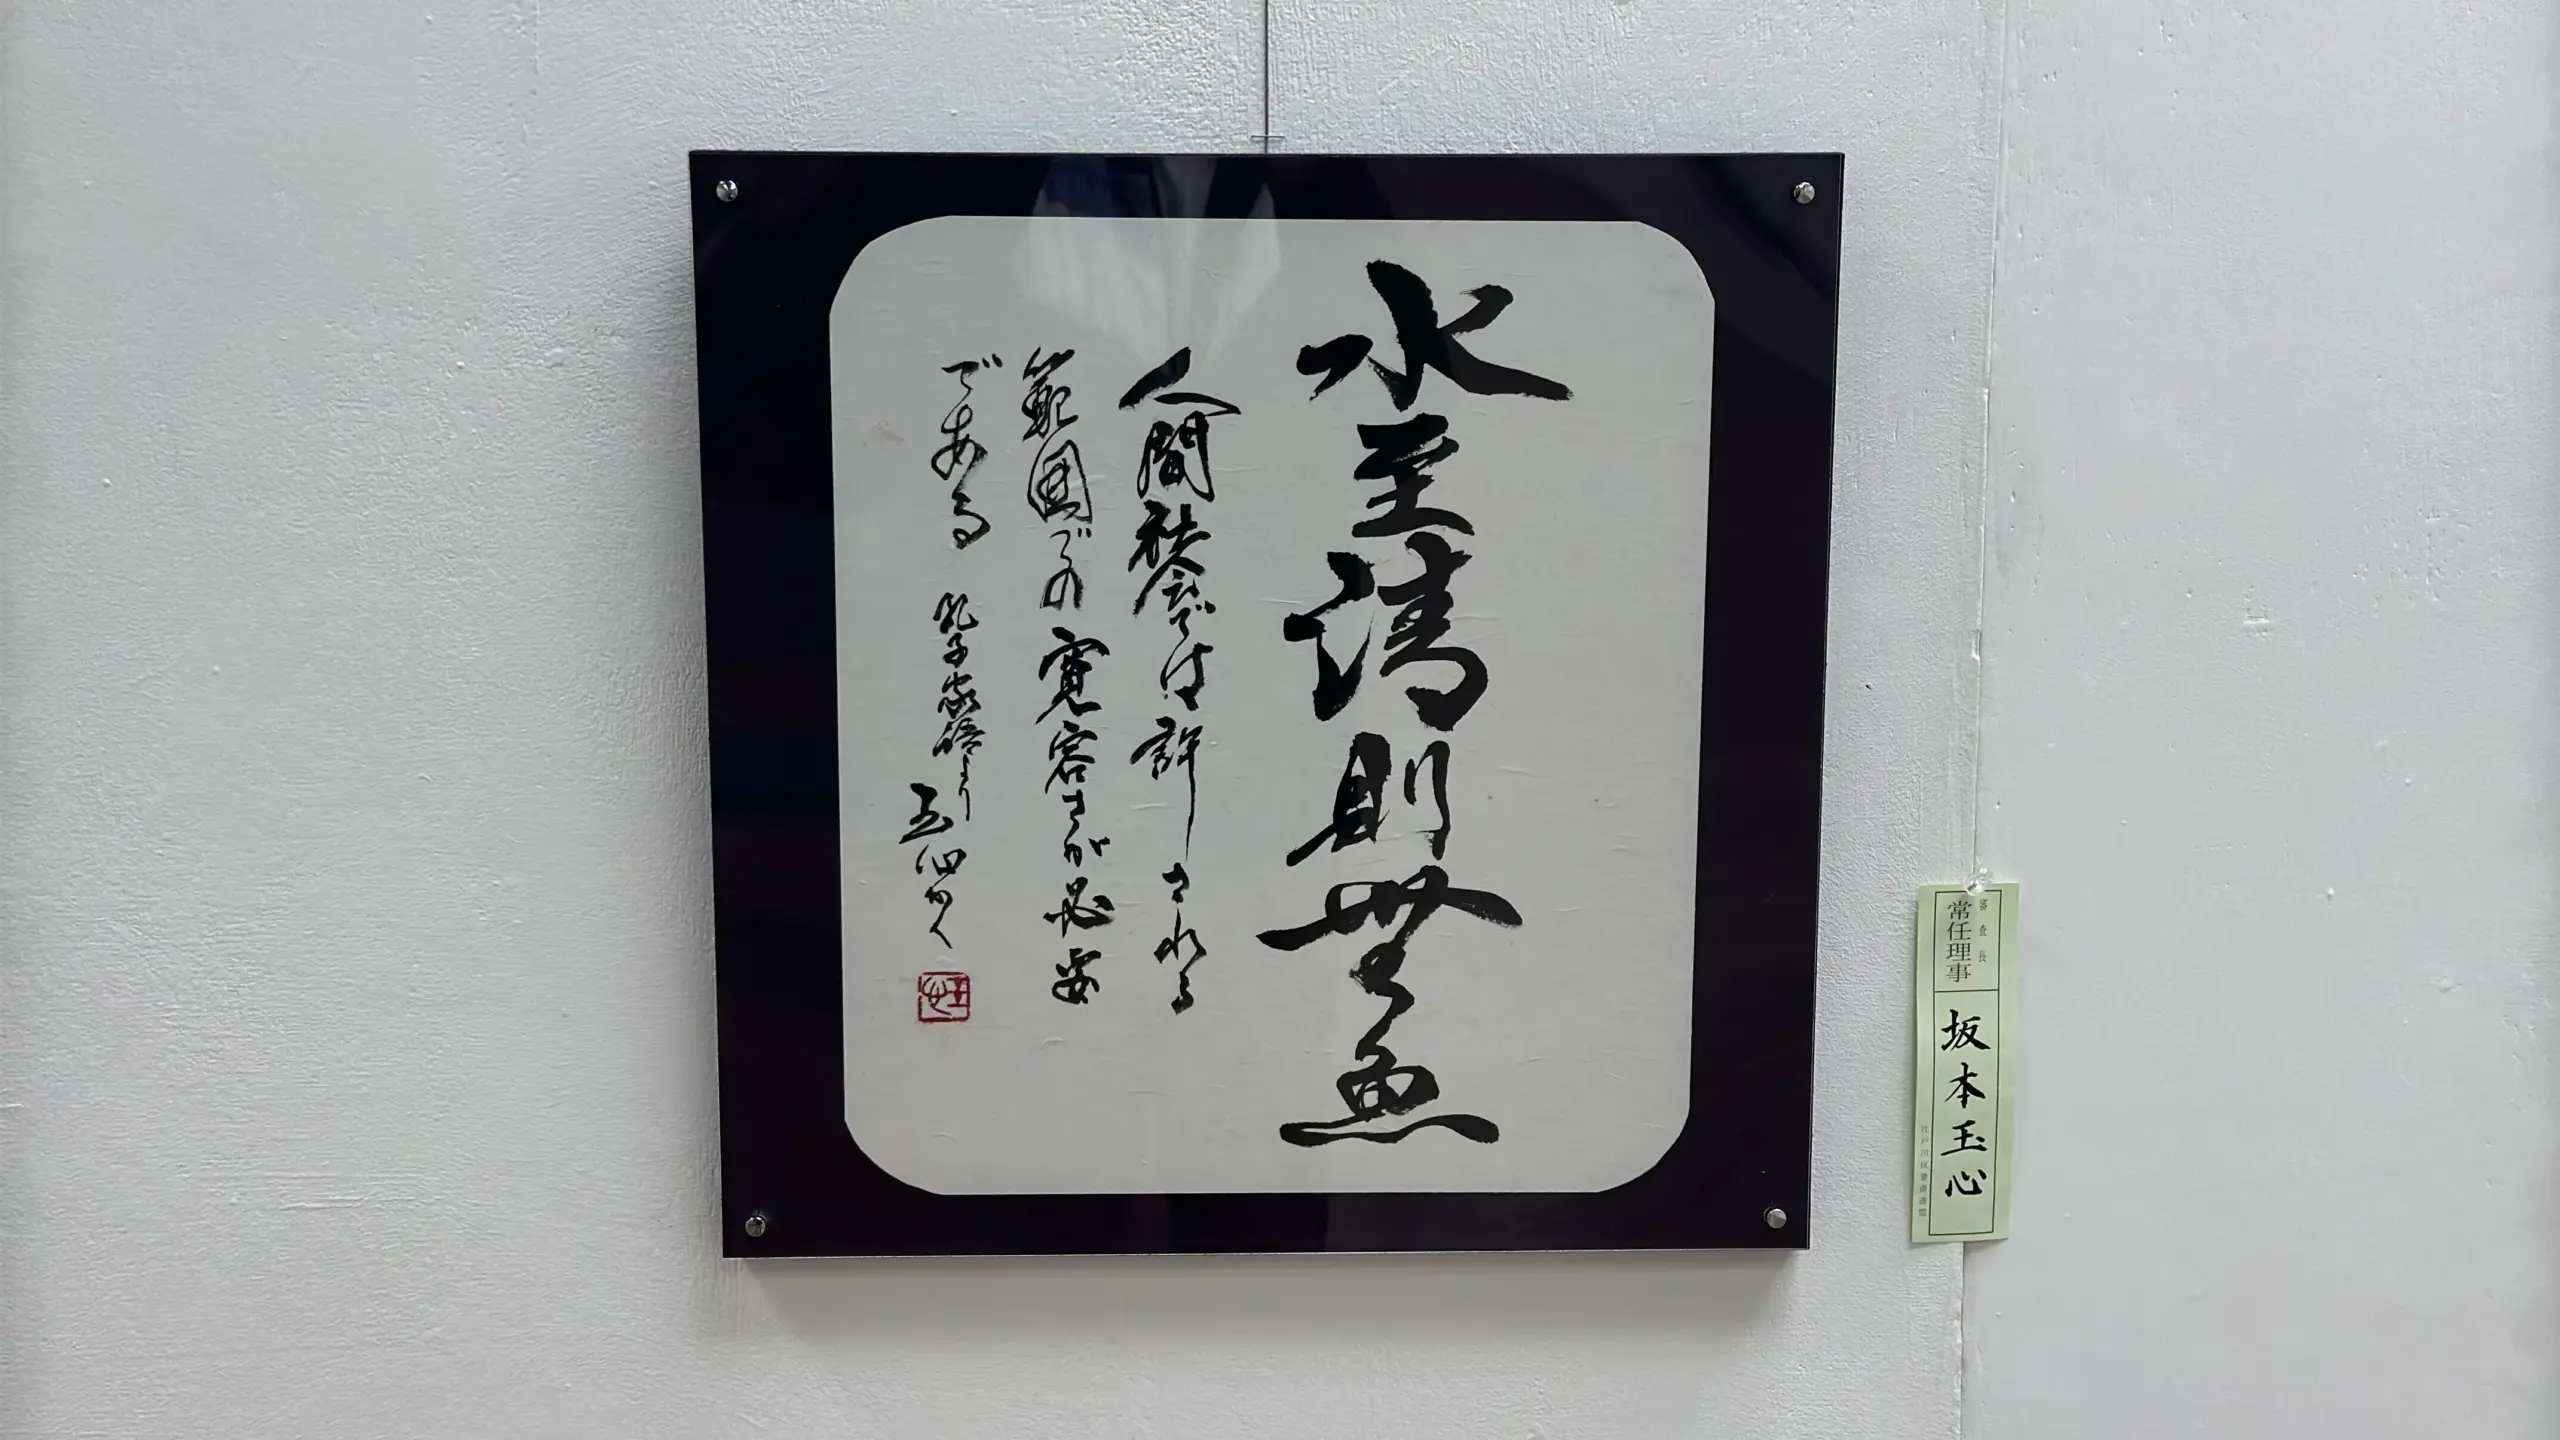 水至清則無魚
人間社会では許される
範囲での寛容さが必要
である 孔子家語より
玉心かく
審査長
常任理事
坂本玉心
江戸川区書道連盟